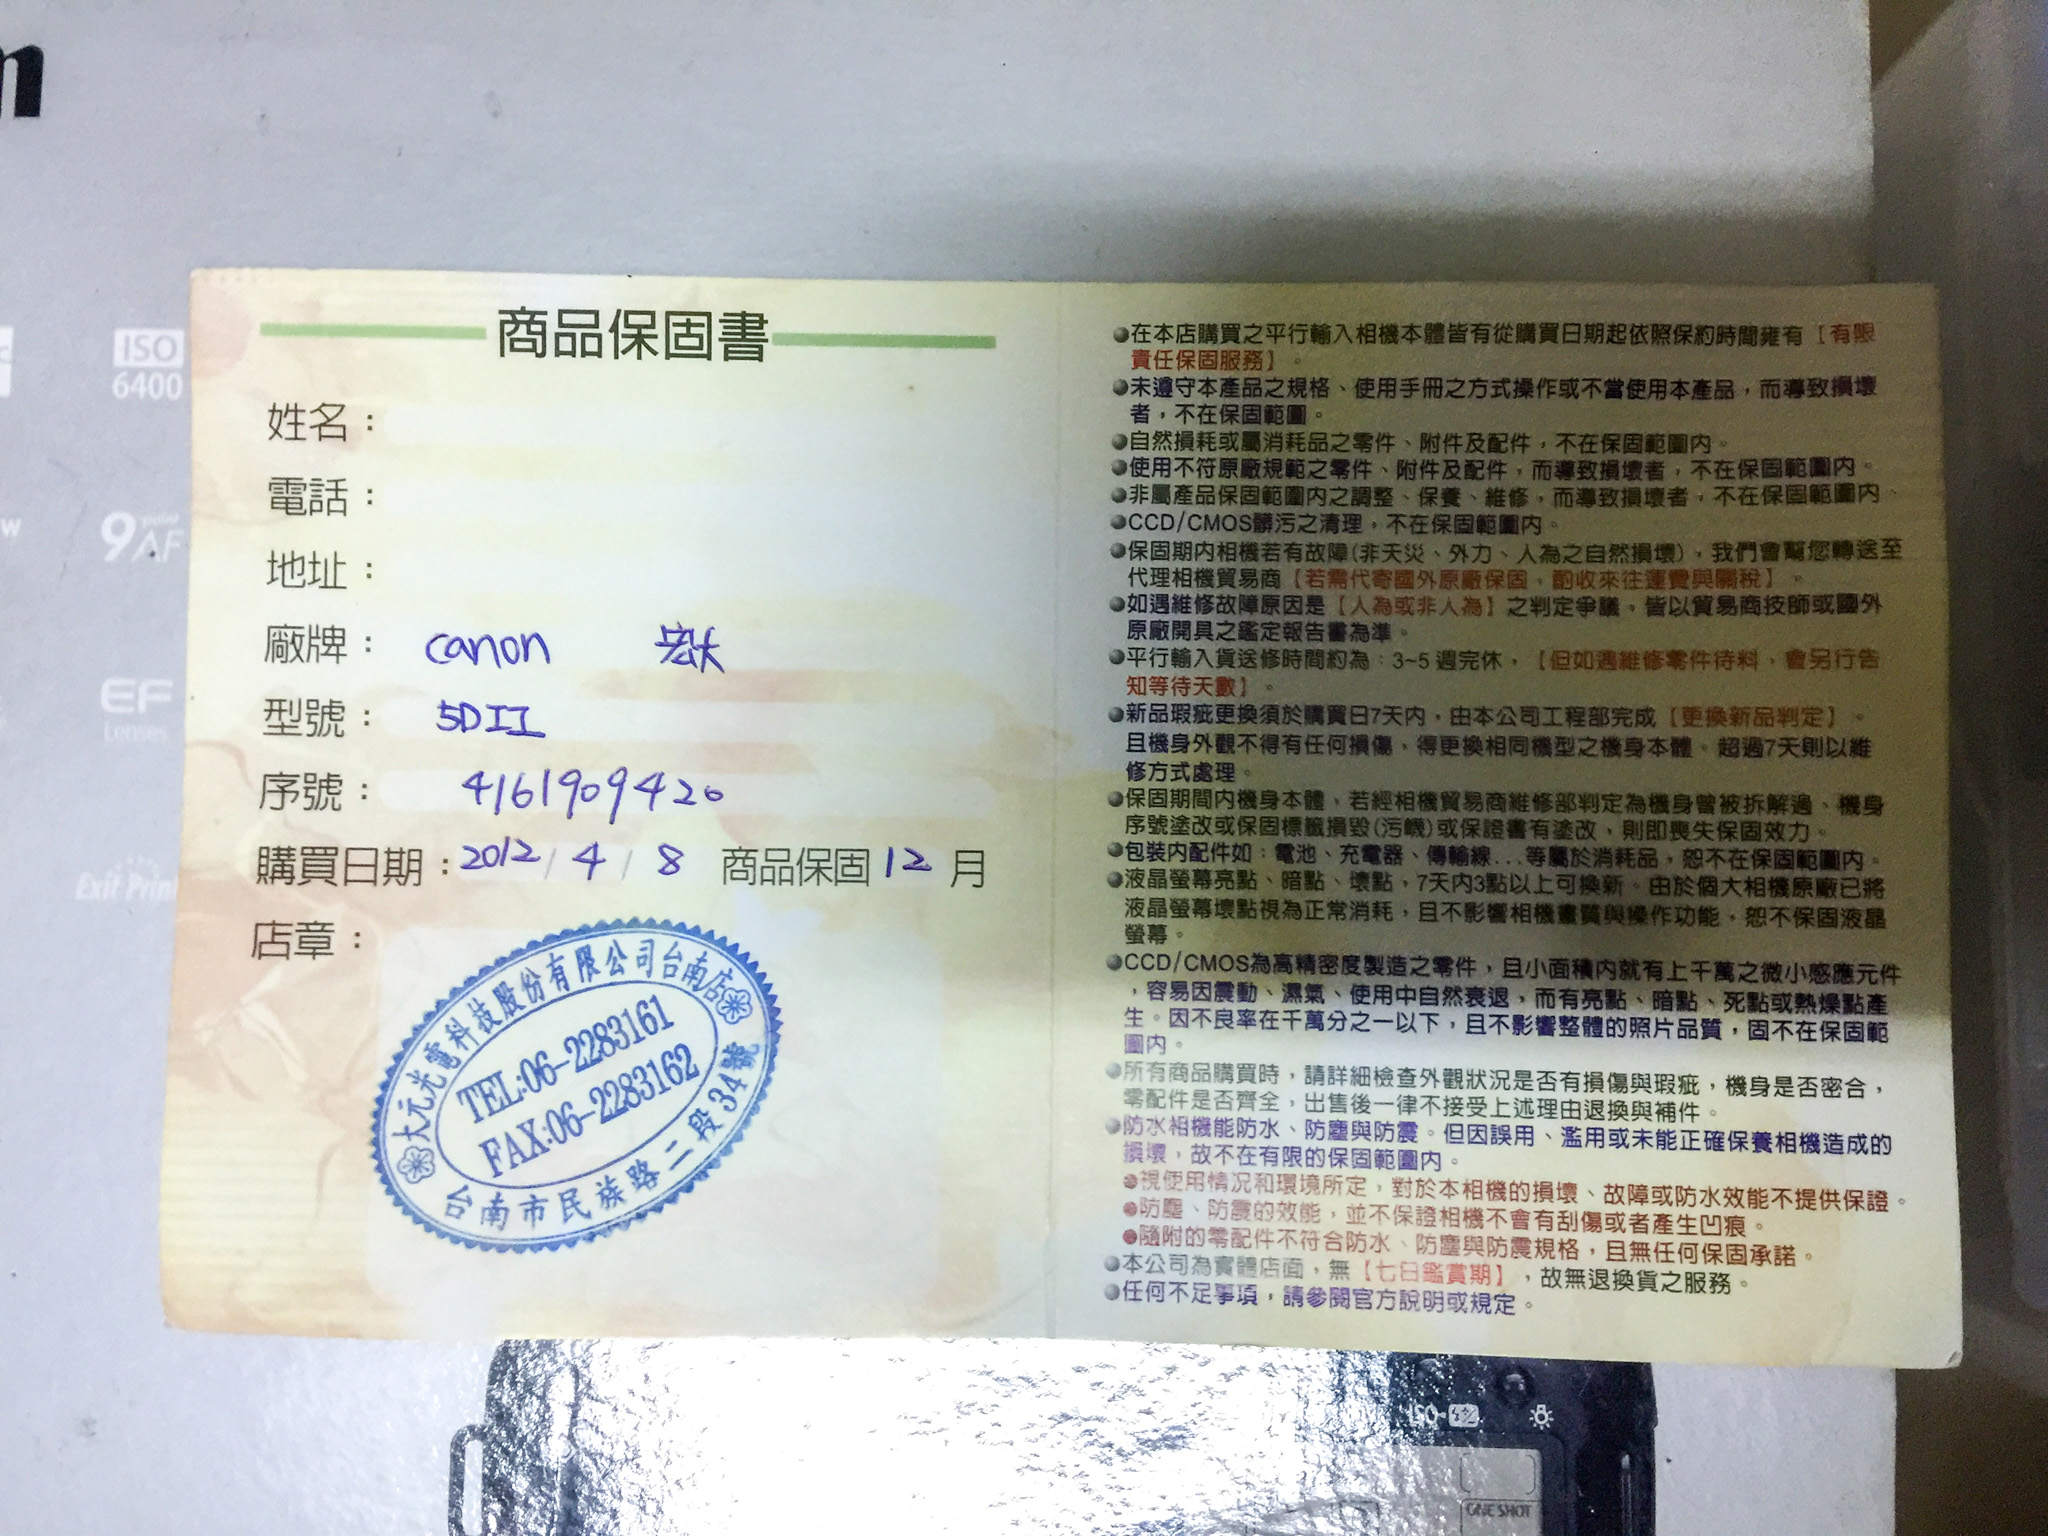 n
ISO
6400
9 point
AF
EF
Lenses
Exif Prin
商品保固書
姓名：
電話：
地址：
廠牌： canon
型號： 5DII
序號： 4161909420
購買日期：2012/4/8 商品保固12月
店章：
大元光電科技股份有限公司台南店
TEL:06-2283161
FAX:06-2283162
台南市民族路二段34號
●在本店購買之平行輸入相機本體皆有從購買日期起依照保約時間擁有【有限
責任保固服務】。
●未遵守本產品之規格、使用手冊之方式操作或不當使用本產品，而導致損壞
者，不在保固範圍。
●自然損耗或屬消耗品之零件、附件及配件，不在保固範圍內。
●使用不符原廠規範之零件、附件及配件，而導致損壞者，不在保固範圍內。
●非屬產品保固範圍內之調整、保養、維修，而導致損壞者，不在保固範圍內、
●CCD/CMOS髒污之清理，不在保固範圍內。
●保固期內相機若有故障(非天災、外力、人為之自然損壞)，我們會幫您轉送至
代理相機貿易商【若需代寄國外原廠保固，酌收來往運費與關稅】。
●如遇維修故障原因是【人為或非人為】之判定爭議，皆以貿易商技師或國外
原廠開具之鑑定報告書為準。
●平行輸入貨送修時間約為：3~5週完休，【但如遇維修零件待料，會另行告
知等待天數】。
●新品瑕疵更換須於購買日7天內，由本公司工程部完成【更換新品判定】。
且機身外觀不得有任何損傷，得更換相同機型之機身本體。超過7天則以維
修方式處理。
●保固期間內機身本體，若經相機貿易商維修部判定為機身曾被拆解過、機身
序號塗改或保固標籤損毀(污衊)或保證書有塗改，則即喪失保固效力。
●包裝內配件如：電池、充電器、傳輸線...等屬於消耗品，恕不在保固範圍內。
●液晶螢幕亮點、暗點、壞點，7天內3點以上可換新。由於個大相機原廠已將
液晶螢幕壞點視為正常消耗，且不影響相機畫質與操作功能，恕不保固液晶
螢幕。
●CCD/CMOS為高精密度製造之零件，且小面積內就有上千萬之微小感應元件
，容易因震動、濕氣、使用中自然衰退，而有亮點、暗點、死點或熱燥點產
生。因不良率在千萬分之一以下，且不影響整體的照片品質，固不在保固範
圍內。
●所有商品購買時，請詳細檢查外觀狀況是否有損傷與瑕疵，機身是否密合，
零配件是否齊全，出售後一律不接受上述理由退換與補件。
●防水相機能防水、防塵與防震。但因誤用、濫用或未能正確保養相機造成的
損壞，故不在有限的保固範圍內。
●視使用情況和環境所定，對於本相機的損壞、故障或防水效能不提供保證。
●防塵、防震的效能，並不保證相機不會有刮傷或者產生凹痕。
●隨附的零配件不符合防水、防塵與防震規格，且無任何保固承諾。
●本公司為實體店面，無【七日鑑賞期】，故無退換貨之服務。
●任何不足事項，請參閱官方說明或規定。
ISO
ONE SHOT